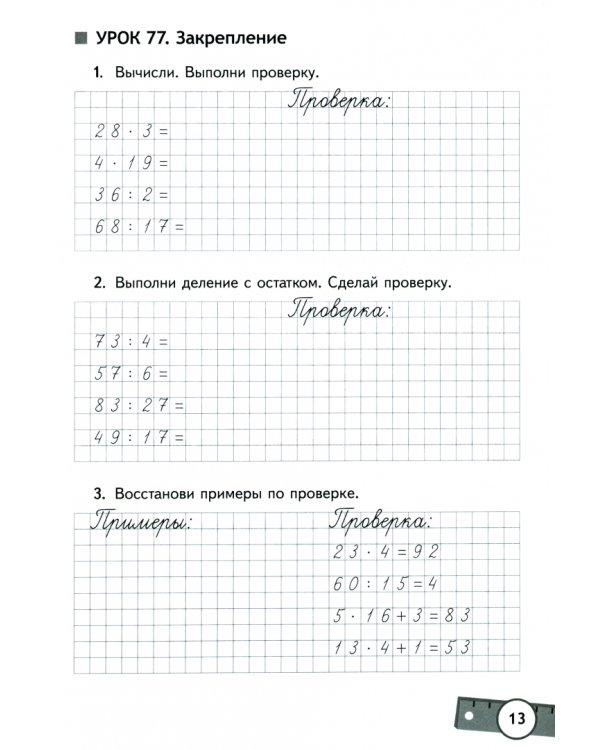 УРОК 77. Закрепление
1. Вычисли. Выполни проверку.
Проверка:
28 · 3 =
4 · 19 =
36 : 2 =
68 : 17 =
2. Выполни деление с остатком. Сделай проверку.
Проверка:
73 : 4 =
57 : 6 =
83 : 27 =
49 : 17 =
3. Восстанови примеры по проверке.
Примеры: Проверка:
23 · 4 = 92
60 : 15 = 4
5 · 16 + 3 = 83
13 · 4 + 1 = 53
13